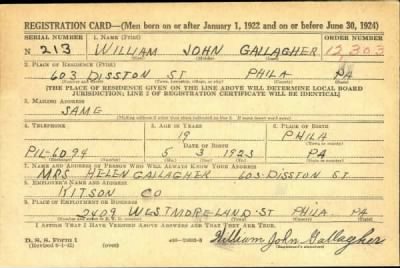 REGISTRATION CARD—(Men born on or after January 1, 1922 and on or before June 30, 1924)
SERIAL NUMBER 1. NAME (Print) ORDER NUMBER
N 213 WILLIAM JOHN GALLAGHER 12303
(First) (Middle) (Last)
2. PLACE OF RESIDENCE (Print)
603 DISSTON ST PHILA PA
(Number and street) (Town, township, village, or city) (County) (State)
[THE PLACE OF RESIDENCE GIVEN ON THE LINE ABOVE WILL DETERMINE LOCAL BOARD
JURISDICTION; LINE 2 OF REGISTRATION CERTIFICATE WILL BE IDENTICAL]
3. MAILING ADDRESS
SAME
4. TELEPHONE 5. AGE IN YEARS 6. PLACE OF BIRTH
19 PHILA
DATE OF BIRTH (Town or county)
PIL-6094 5 3 1923 PA
(Exchange) (Number) (Mo.) (Day) (Yr.) (State or country)
7. NAME AND ADDRESS OF PERSON WHO WILL ALWAYS KNOW YOUR ADDRESS
MRS HELEN GALLAGHER 603 DISSTON ST
8. EMPLOYER'S NAME AND ADDRESS
KITSON CO
9. PLACE OF EMPLOYMENT OR BUSINESS
2409 WESTMORELAND ST PHILA PA
(Number and street or R. F. D. number) (Town) (County) (State)
I AFFIRM THAT I HAVE VERIFIED ABOVE ANSWERS AND THAT THEY ARE TRUE.
D. S. S. Form 1 (over) William John Gallagher